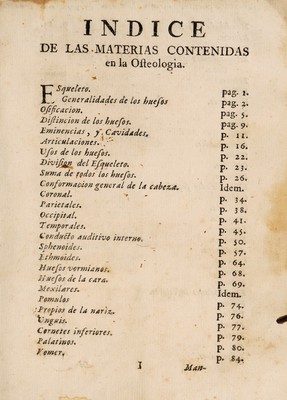 INDICE
DE LAS MATERIAS CONTENIDAS
en la Osteologia.
ESqueleto. pag. 1.
Generalidades de los huesos pag. 2.
Osificacion. pag. 5.
Distincion de los huesos. pag. 9.
Eminencias, y Cavidades. p. 11.
Articulaciones. p. 16.
Usos de los huesos. p. 22.
Division del Esqueleto. p. 23.
Suma de todos los huesos. p. 26.
Conformacion general de la cabeza. Idem.
Coronal. p. 34.
Parietales. p. 38.
Occipital. p. 41.
Temporales. p. 45.
Conducto auditivo interno. p. 50.
Sphenoides. p. 57.
Ethmoides. p. 64.
Huesos vormianos. p. 68.
Huesos de la cara. p. 69.
Mexilares. Idem.
Pomulos p. 74.
Propios de la nariz. p. 76.
Unguis. p. 77.
Cornetes inferiores. p. 79.
Palatinos. p. 80.
Vomer. p. 84.
I Man-